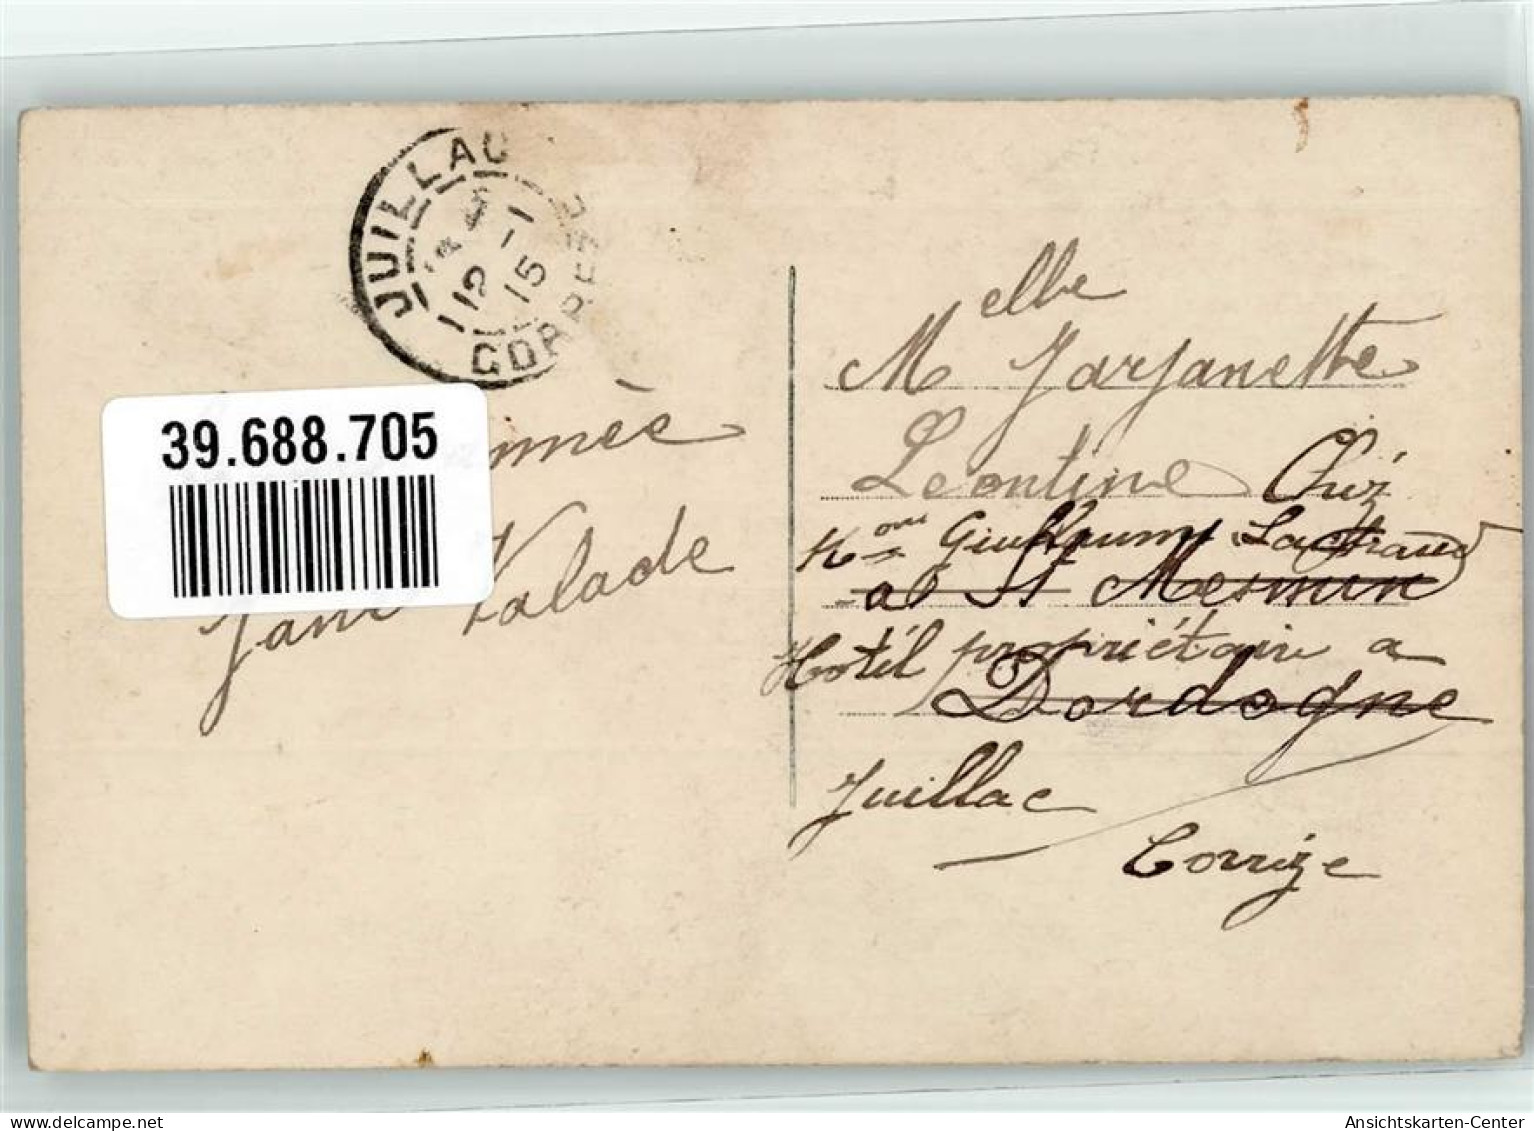 JUILLAC
12 -1
15
CORREZE
39.688.705
Valade
Melle Jarjanette
Leontine Chéz
Guillaume
a St Mesmin
Hotél propriétair a
Dordogne
Juillac
Corrèze
delcampe.net
Ansichtskarten-Center